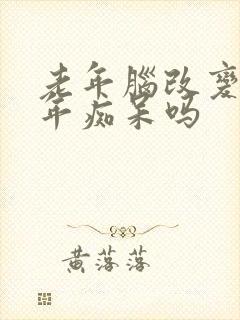 老年腦改變
年痴呆吗
黄落落